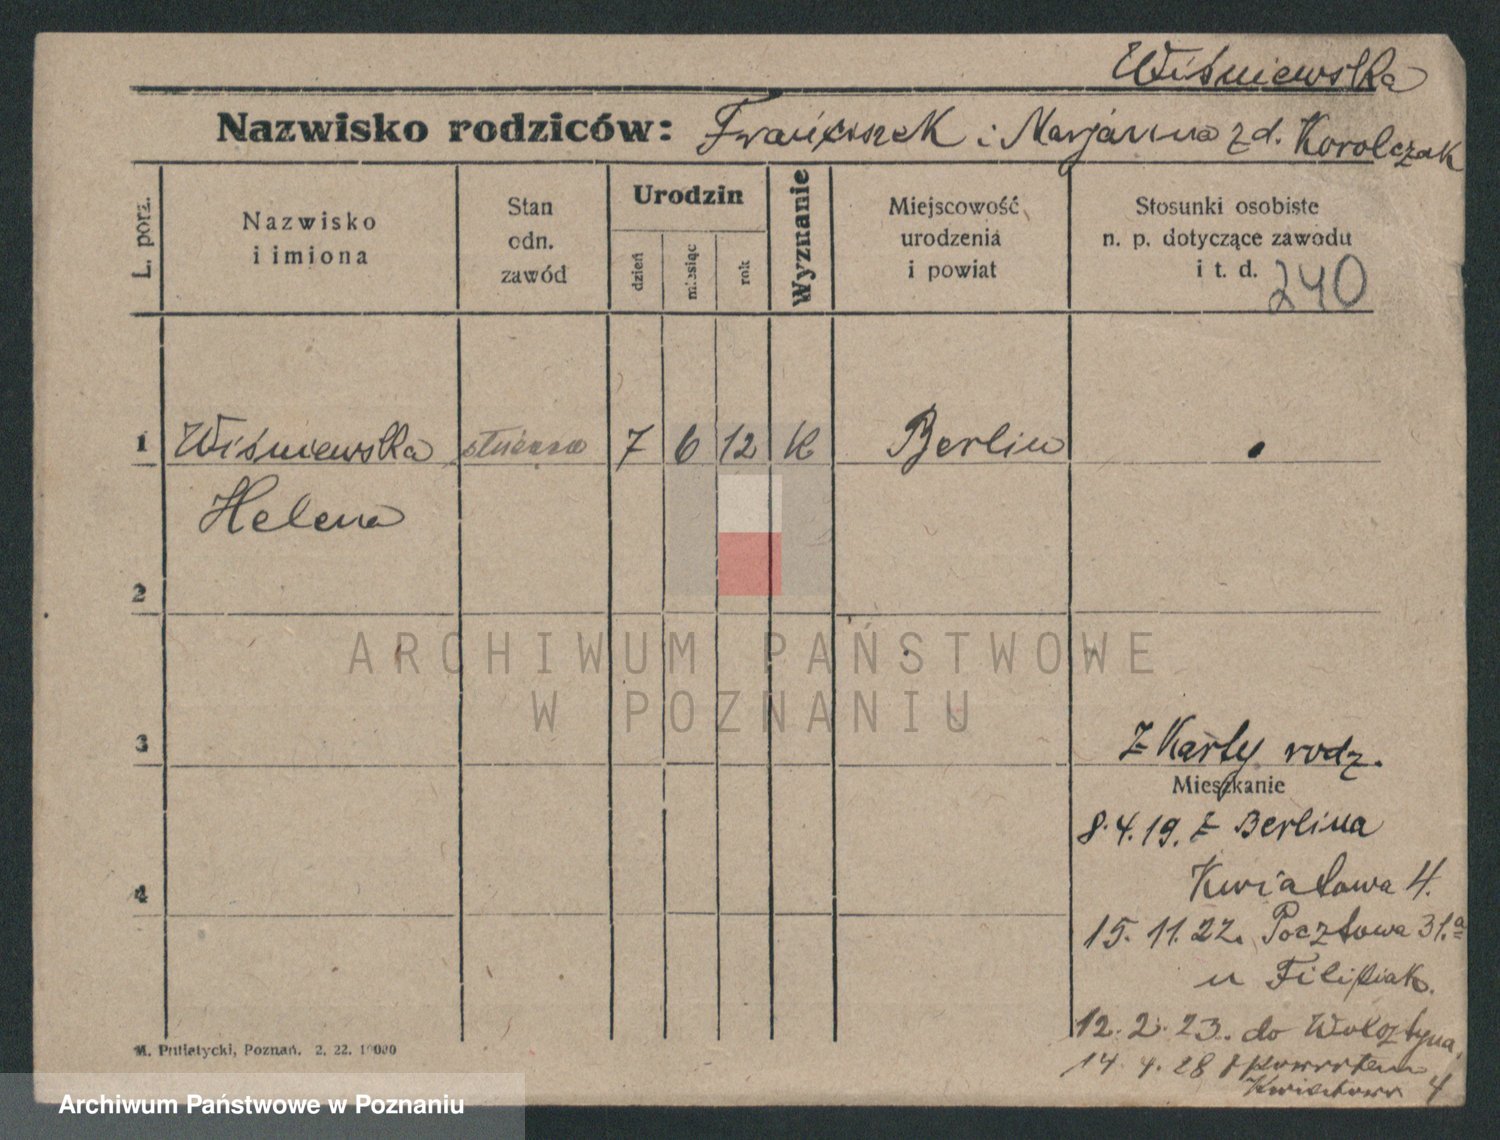 Wiśniewska
Nazwisko rodziców: Franciszek i Marjanna z d. Korolczak
L. porz.
Nazwisko i imiona
Stan odn. zawód
Urodzin
dzień
miesiąc
rok
Wyznanie
Miejscowość urodzenia i powiat
Stosunki osobiste n. p. dotyczące zawodu i t. d.
240
1 Wiśniewska 7 6 12 K Berlin
Helena
2
ARCHIWUM PAŃSTWOWE
W POZNANIU
3 Z Karty rodz.
Mieszkanie
8.4.19. z Berlina
Kwiatowa 4.
4
15.11.22. Pocztowa 31.a
u Filipiak.
12.2.23. do Wolsztyna,
14.4.28 z powrotem
Kwiatowa 4
M. Putiatycki, Poznań. 2. 22. 10000
Archiwum Państwowe w Poznaniu